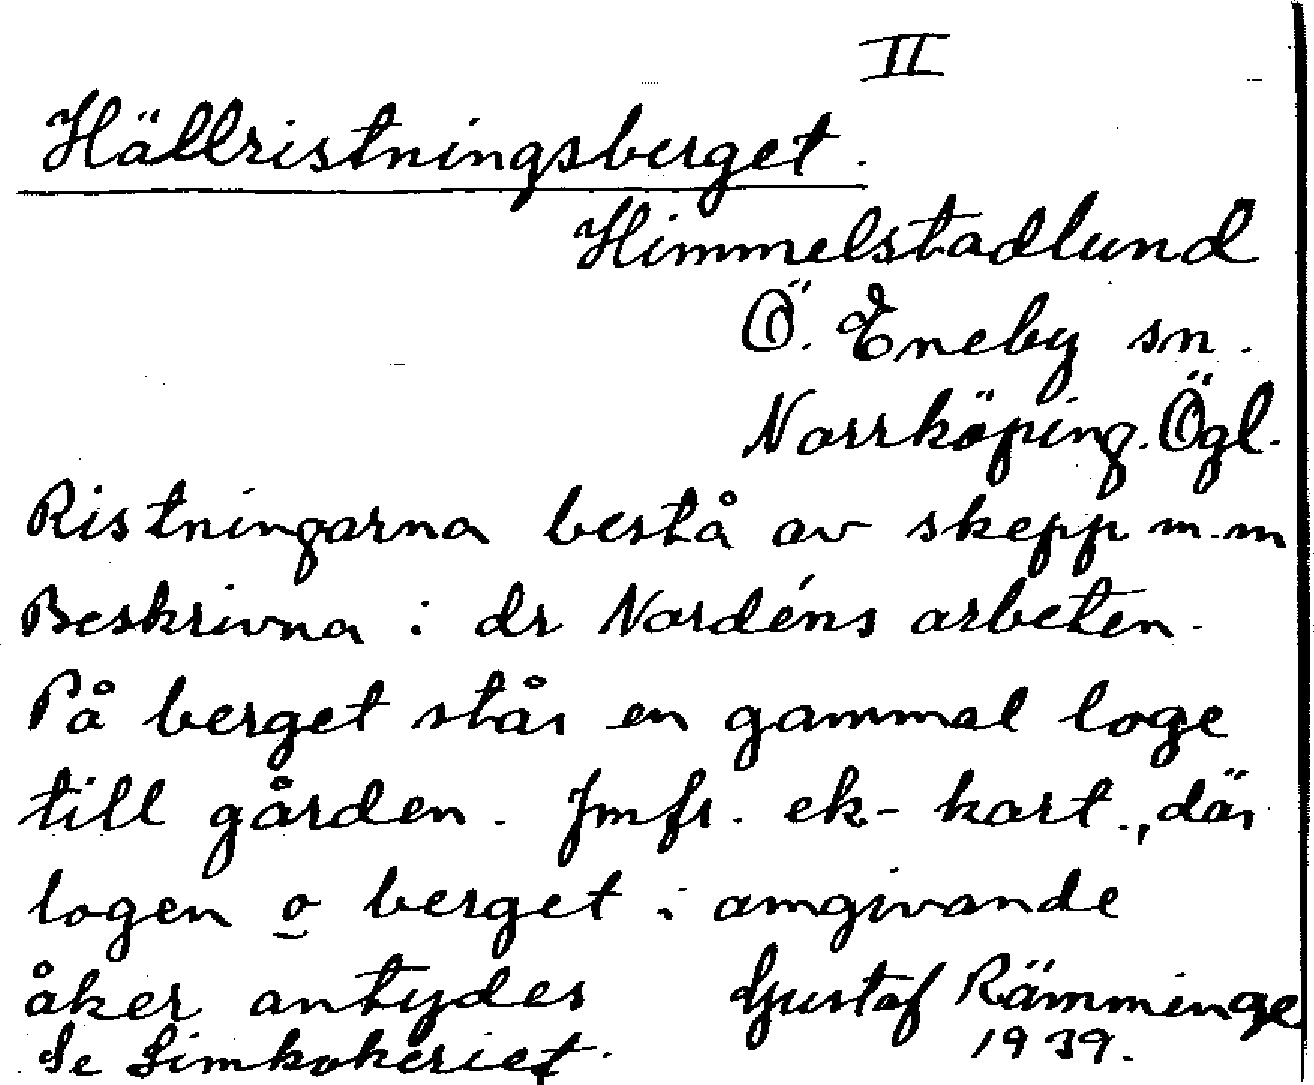 II
Hällristningsberget.
Himmelstadlund
Ö. Eneby sn.
Norrköping. Ögl.
Ristningarna bestå av skepp m.m
Beskrivna i dr Nordéns arbeten.
På berget står en gammal loge
till gården. Jmfr. ek-kart., där
logen o berget i omgivande
åker antydes
Gustaf Rämminge
Se Limkokeriet.
1939.